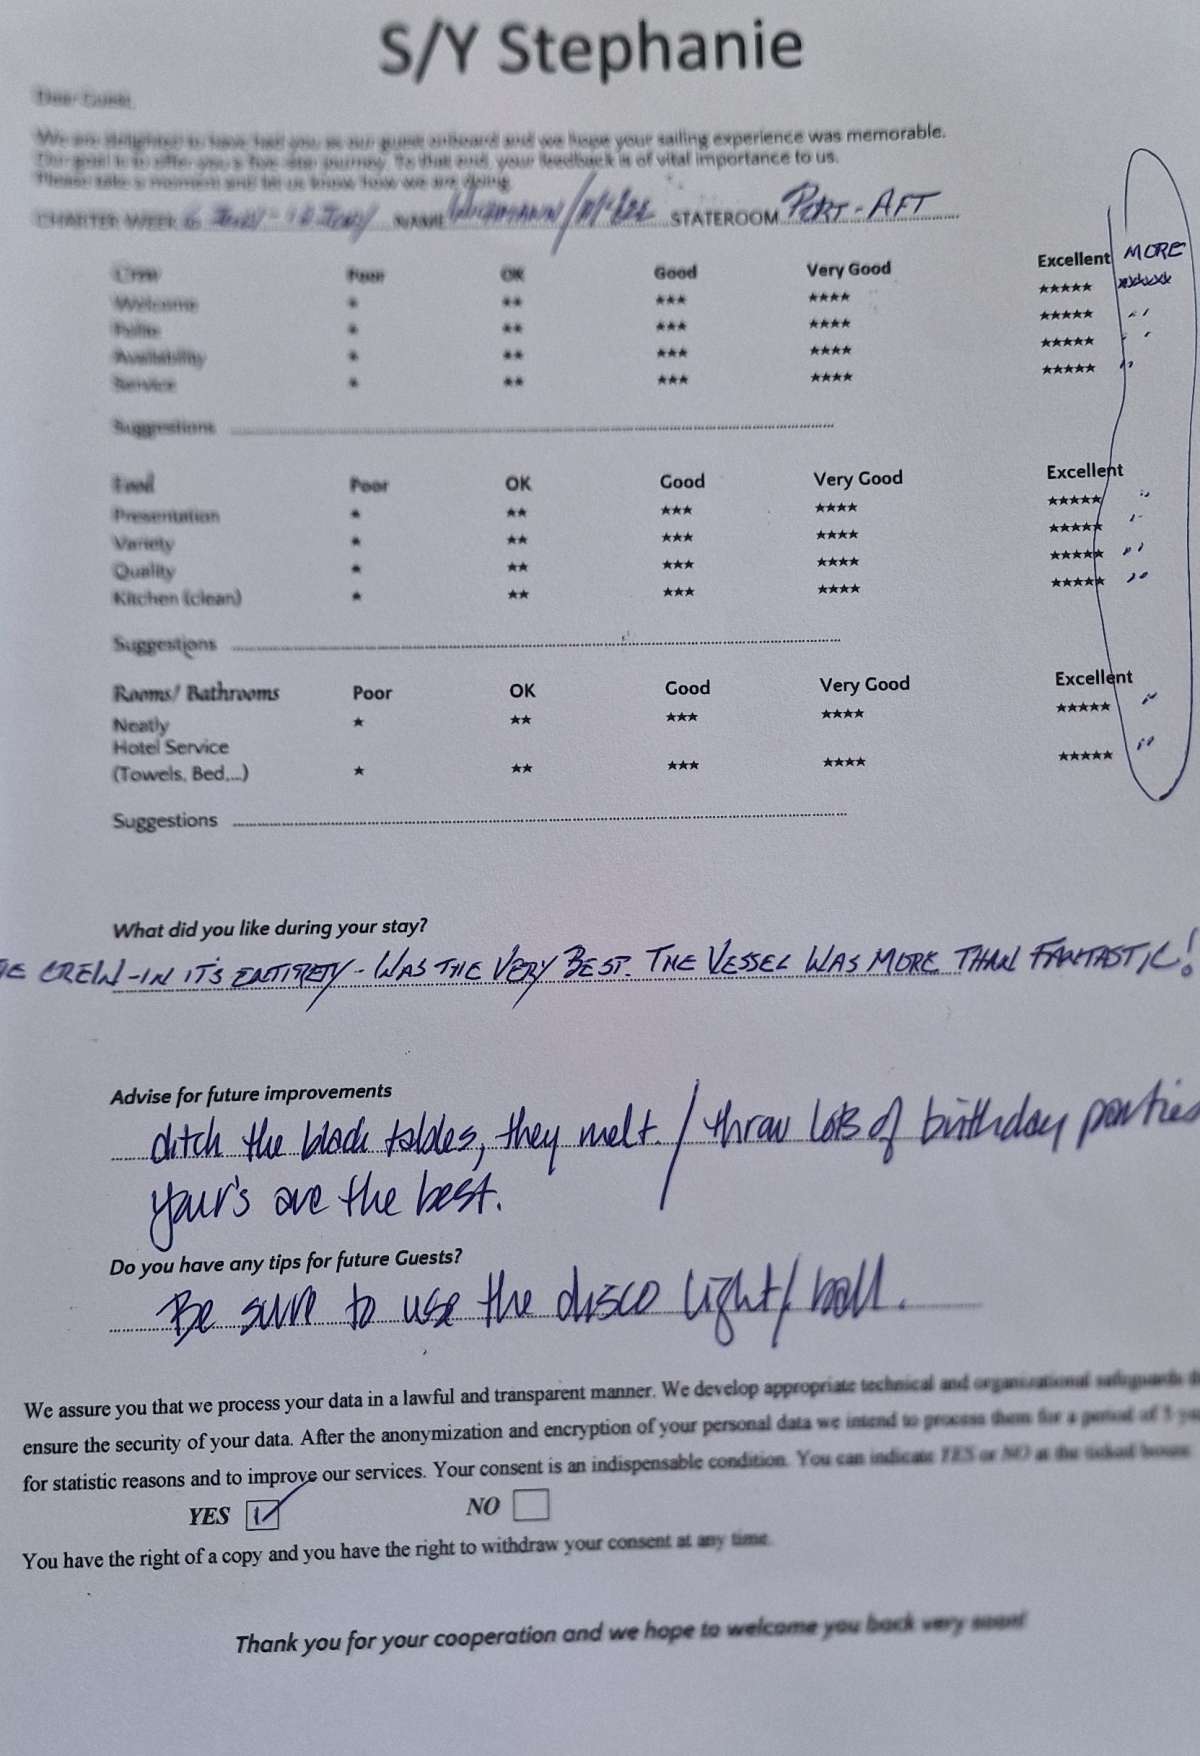 S/Y Stephanie
Dear Guest,
We are delighted to have had you as our guest onboard and we hope your sailing experience was memorable.
Our goal is to offer you a five-star journey. To that end, your feedback is of vital importance to us.
Please take a moment and let us know how we are doing.
CHARTER WEEK NAME STATEROOM PORT-AFT
Crew Poor OK Good Very Good Excellent MORE
Welcome * ** *** **** ***** *****
Polite * ** *** **** ***** ''
Availability * ** *** **** ***** ''
Service * ** *** **** ***** ''
Suggestions
Food Poor OK Good Very Good Excellent
Presentation * ** *** **** ***** ''
Variety * ** *** **** ***** ''
Quality * ** *** **** ***** ''
Kitchen (clean) * ** *** **** ***** ''
Suggestions
Rooms/ Bathrooms Poor OK Good Very Good Excellent
Neatly * ** *** **** ***** ''
Hotel Service
(Towels, Bed,...) * ** *** **** ***** ''
Suggestions
What did you like during your stay?
CREW-IN IT'S ENTIRETY-WAS THE VERY BEST. THE VESSEL WAS MORE THAN FANTASTIC!
Advise for future improvements
ditch the black tables, they melt. / throw lots of birthday parties
your's are the best.
Do you have any tips for future Guests?
Be sure to use the disco light/ball.
We assure you that we process your data in a lawful and transparent manner. We develop appropriate technical and organizational safeguards
ensure the security of your data. After the anonymization and encryption of your personal data we intend to process them for a period of 5
for statistic reasons and to improve our services. Your consent is an indispensable condition. You can indicate YES or NO at the
YES NO
You have the right of a copy and you have the right to withdraw your consent at any time.
Thank you for your cooperation and we hope to welcome you back very soon!